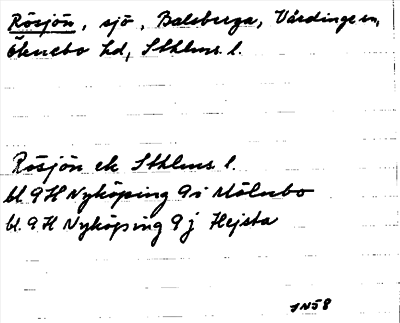 Rösjön, sjö, Balsberga, Vårdinge sn,
Öknebo hd, Sthlms l.
Rösjön ek Sthlms l.
bl. 9H Nyköping 9i Mölnbo
bl. 9H Nyköping 9j Hejsta
JN58